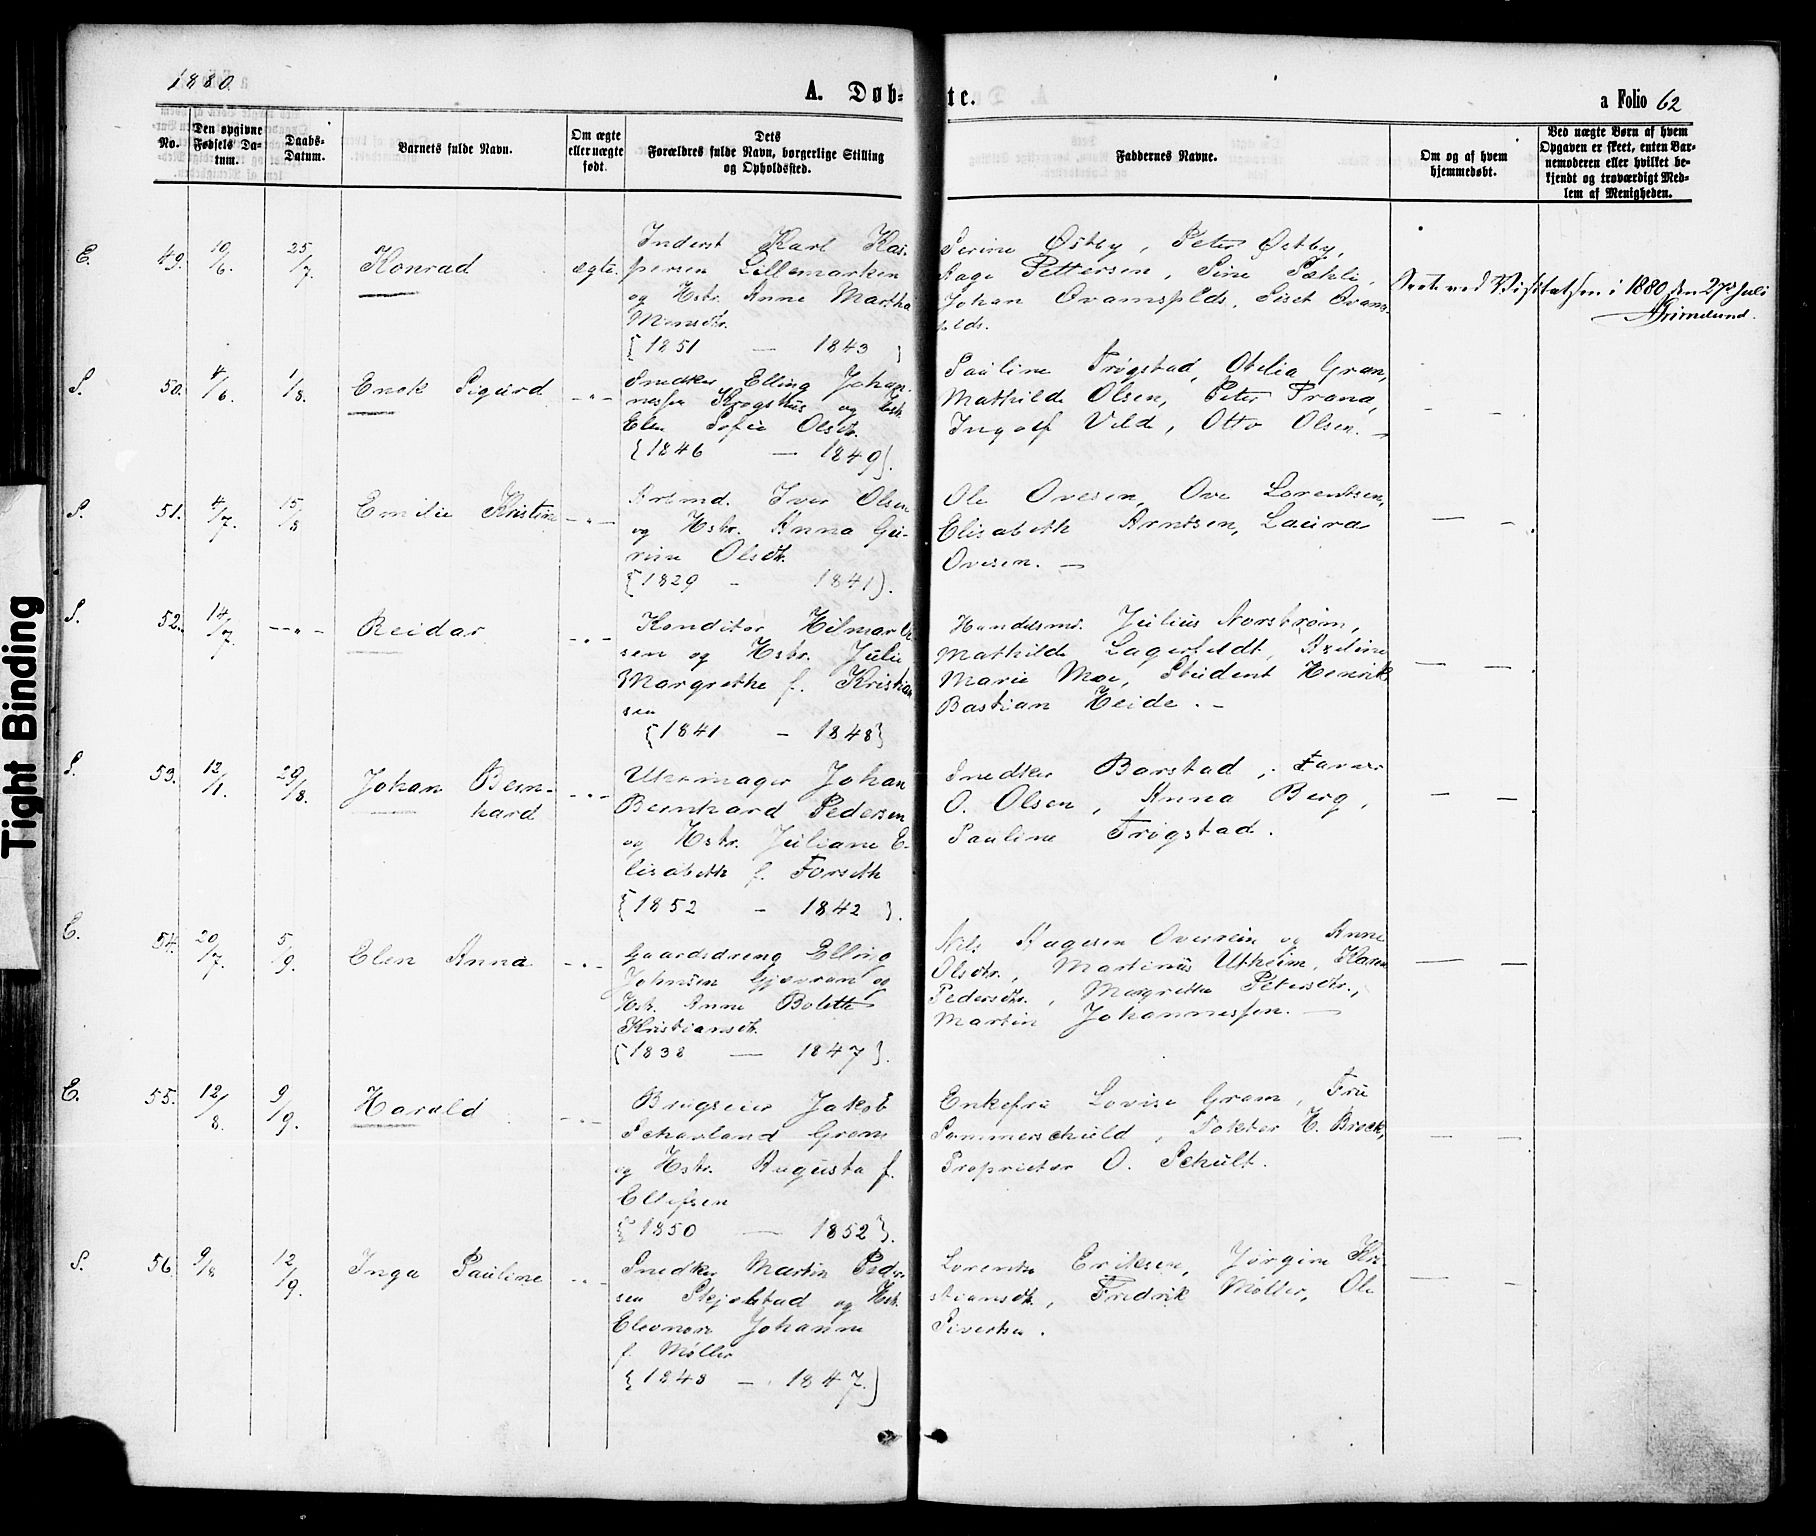 1880.
A. Døb-
te.
a Folio 62
No.
Den opgivne
Fødsels Da-
tum.
Daabs-
Datum.
Barnets fulde Navn.
Om ægte
eller uægte
født.
Dets
Forældres fulde Navn, borgerlige Stilling
og Opholdssted.
Faddernes Navne.
Om og af hvem
hjemmedøbt.
Ved uægte Børn af hvem
Opgaven er skeet, enten Bar-
nemoderen eller hvilket be-
kjendt og troværdigt Med-
lem af Menigheden.
E. 49. 10/6. 25/7. Konrad ægte.
Inderst Karl Kas-
persen Lillemarken
og Hstr. Anne Martha
Monsdtr.
[1851 — 1843]
Serine Østby, Peter Østby,
Aage Pettersen, Sine Sækli,
Johan Ovamsflds, Siset Ovams-
flds.
Seet ved Visitatsen i 1880 den 27de Juli
Grimelund.
S. 50. 4/6. 1/8. Enok Sigurd —„—
Snedker Elling Johan-
nessen Krogshus og Hstr.
Elen Sofie Olsdtr.
{1846 — 1849}.
Pauline Trøgstad, Otelia Gran,
Mathilde Olsen, Peter Trana,
Ingolf Vild, Otto Olsen. —
S. 51. 4/7. 15/8 Emilie Kristine —„—
Arbmd. Iver Olsen
og Hstr. Anna Gu-
rine Olsdtr.
{1829 - 1841).
Ole Ovesen, Ove Lorentsen,
Elisabeth Arntsen, Laura
Ovesen. —
S. 52. 14/7. —„— Reidar —„—
Konditor Hilmar Ol-
sen og Hstr. Julie
Margrethe f. Kristian
sen
{1841 - 1848}
Handelsmd. Julius Norstrøm,
Mathilde Lagerfeldt, Adeline
Marie Moe, Student Henrik
Bastian Heide. -
S. 53. 12/1. 29/8. Johan Bern-
hard —„—
Uhrmager Johan
Bernhard Pedersen
og Hstr. Juliane E-
lisabeth f. Forseth
{1852 - 1842}.
Snedker Barstad, Farver
O. Olsen, Anna Berg,
Pauline Trøgstad.
E. 54. 20/7. 5/9. Elen Anna —„—
Gaardsdreng Elling
Johnsen Gjævran og
Hst. Anne Bolette
Kristiansdt.
{1838 — 1847}.
Nils Aagesen Overrein og Anne
Olsdtr., Martinus Utheim, Karen
Pedersdtr., Margrethe Petersdtr.,
Martin Johannessen. —
E. 55. 12/8. 9/9. Harald —„—
Brugseier Jakob
Schavland Gram
og Hstr. Augusta f.
Ellefsen
{1850 — 1852}.
Enkefru Lovise Gram, Fru
Sommerschuld, Doktor H. Brock,
Proprietær O. Schult.
S. 56. 9/8 12/9. Inga Pauline —„—
Snedker Martin Peder-
sen Skjølstad og Hstr.
Eleonora Johanna
f. Møller
{1848 — 1847.)
Lorentse Eriksen, Jørgine Kri-
stiansdt., Fredrik Møller, Ole
Sivertsen.
Tight Binding